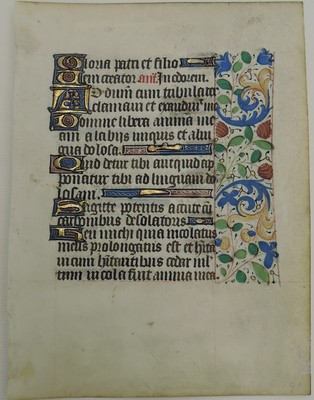 Gloria patri et filio
Veni creator añ. In odorem.
Ad dñm cum tribula
clamaui et exaudiuit me
Domine libera anima me
am a labijs iniquis et a lin
gua dolosa.
Quid detur tibi aut quid ap
ponatur tibi ad linguam do
losam.
Sagitte potentis acute cū
carbonibus desolatorijs
Heu michi quia incolatus
meus prolongatus est et hīta
ui cum hītantibus cedar mul
tum incola fuit anima mea